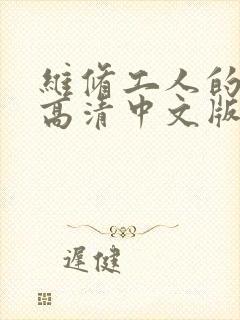 維脩工人的
高清中文版
遲健